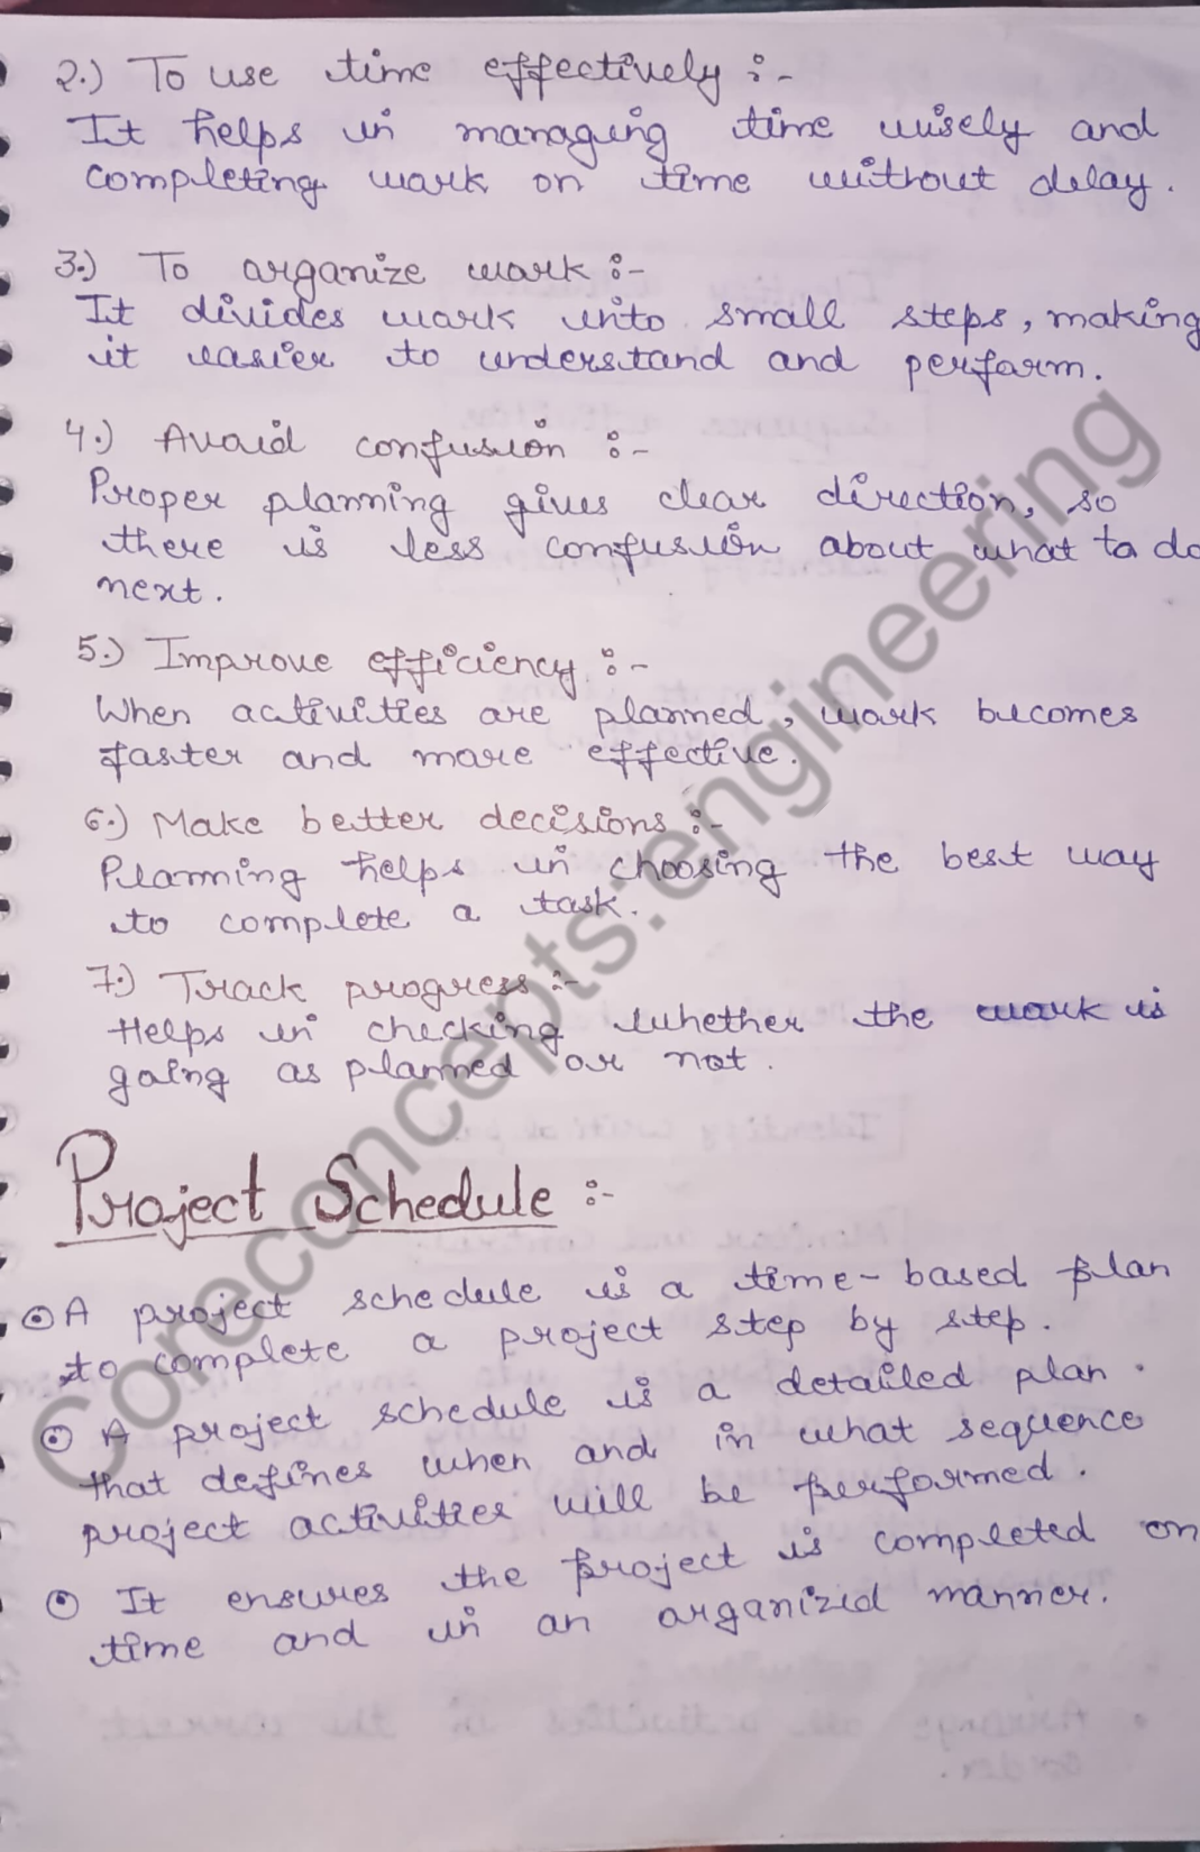 2.) To use time effectively :-
It helps in managing time wisely and
completing work on time without delay.
3.) To organize work :-
It divides work into small steps, making
it easier to understand and perform.
4.) Avoid confusion :-
Proper planning gives clear direction, so
there is less confusion about what to do
next.
5.) Improve efficiency :-
When activities are planned, work becomes
faster and more effective.
6.) Make better decisions :-
Planning helps in choosing the best way
to complete a task.
7.) Track progress :-
Helps in checking whether the work is
going as planned or not.
Project Schedule :-
⊙ A project schedule is a time-based plan
to complete a project step by step.
⊙ A project schedule is a detailed plan
that defines when and in what sequence
project activities will be performed.
⊙ It ensures the project is completed on
time and in an organized manner.
Coreconcepts.engineering